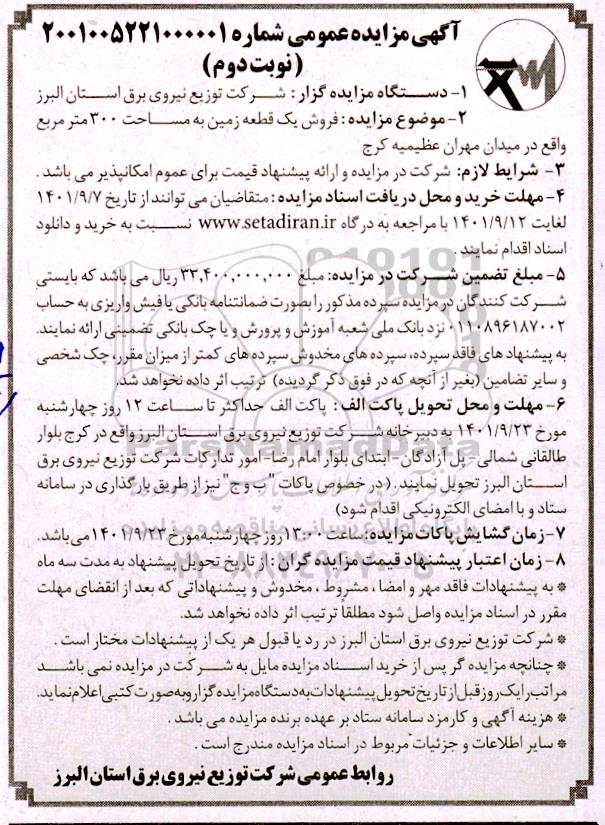 آگهی مزایده عمومی شماره ۲۰۰۱۰۰۵۲۲۱۰۰۰۰۰۱
(نوبت دوم)
۱- دستگاه مزایده گزار: شرکت توزیع نیروی برق استان البرز
۲- موضوع مزایده: فروش یک قطعه زمین به مساحت ۳۰۰ متر مربع
واقع در میدان مهران عظیمیه کرج
۳- شرایط لازم: شرکت در مزایده و ارائه پیشنهاد قیمت برای عموم امکانپذیر می باشد.
۴- مهلت خرید و محل دریافت اسناد مزایده: متقاضیان می توانند از تاریخ ۱۴۰۱/۹/۷
لغایت ۱۴۰۱/۹/۱۲ با مراجعه به درگاه www.setadiran.ir نسبت به خرید و دانلود
اسناد اقدام نمایند.
۵- مبلغ تضمین شرکت در مزایده: مبلغ ۳۳,۴۰۰,۰۰۰,۰۰۰ ریال می باشد که بایستی
شرکت کنندگان در مزایده سپرده مذکور را بصورت ضمانتنامه بانکی یا فیش واریزی به حساب
۰۱۱۰۸۹۶۱۸۷۰۰۲ نزد بانک ملی شعبه آموزش و پرورش و یا چک بانکی تضمینی ارائه نمایند.
به پیشنهاد های فاقد سپرده، سپرده های مخدوش سپرده های کمتر از میزان مقرر، چک شخصی
و سایر تضامین (بغیر از آنچه که در فوق ذکر گردیده) ترتیب اثر داده نخواهد شد.
۶- مهلت و محل تحویل پاکت الف: پاکت الف حداکثر تا ساعت ۱۲ روز چهارشنبه
مورخ ۱۴۰۱/۹/۲۳ به دبیرخانه شرکت توزیع نیروی برق استان البرز واقع در کرج بلوار
طالقانی شمالی- پل آزادگان- ابتدای بلوار امام رضا- امور تدارکات شرکت توزیع نیروی برق
استان البرز تحویل نمایند. (در خصوص پاکات "ب و ج" نیز از طریق بارگذاری در سامانه
ستاد و با امضای الکترونیکی اقدام شود)
۷- زمان گشایش پاکات مزایده: ساعت ۱۳:۰۰ روز چهارشنبه مورخ ۱۴۰۱/۹/۲۳ می باشد.
۸- زمان اعتبار پیشنهاد قیمت مزایده گران: از تاریخ تحویل پیشنهاد به مدت سه ماه
* به پیشنهادات فاقد مهر و امضا، مشروط، مخدوش و پیشنهاداتی که بعد از انقضای مهلت
مقرر در اسناد مزایده واصل شود مطلقاً ترتیب اثر داده نخواهد شد.
* شرکت توزیع نیروی برق استان البرز در رد یا قبول هر یک از پیشنهادات مختار است.
* چنانچه مزایده گر پس از خرید اسناد مزایده مایل به شرکت در مزایده نمی باشد
مراتب را یک روز قبل از تاریخ تحویل پیشنهادات به دستگاه مزایده گزار و به صورت کتبی اعلام نماید.
* هزینه آگهی و کارمزد سامانه ستاد بر عهده برنده مزایده می باشد.
* سایر اطلاعات و جزئیات مربوط در اسناد مزایده مندرج است.
روابط عمومی شرکت توزیع نیروی برق استان البرز